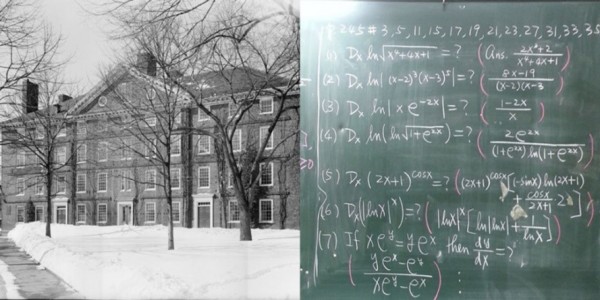 P 245 # 3, 5, 11, 15, 17, 19, 21, 23, 27, 31, 33, 35
(1) Dx ln√(x⁴+4x+1) = ? (Ans. (2x³+2)/(x⁴+4x+1))
(2) Dx ln|(x-2)³(x-3)⁵| = ? ((8x-19)/((x-2)(x-3)
(3) Dx ln|x e^(-2x)| = ? ((1-2x)/x)
(4) Dx ln(ln√(1+e^(2x))) = ? (2e^(2x)/((1+e^(2x)) ln(1+e^(2x))))
(5) Dx (2x+1)^(cosx) = ? ((2x+1)^(cosx)[(-sinx) ln(2x+1)
+ cosx/(2x+1) · 2])
(6) Dx(|lnx|^x) = ? (|lnx|^x [ln|lnx| + 1/lnx])
(7) If xe^y = ye^x, then dy/dx = ?
((ye^x - e^y)/(xe^y - e^x))